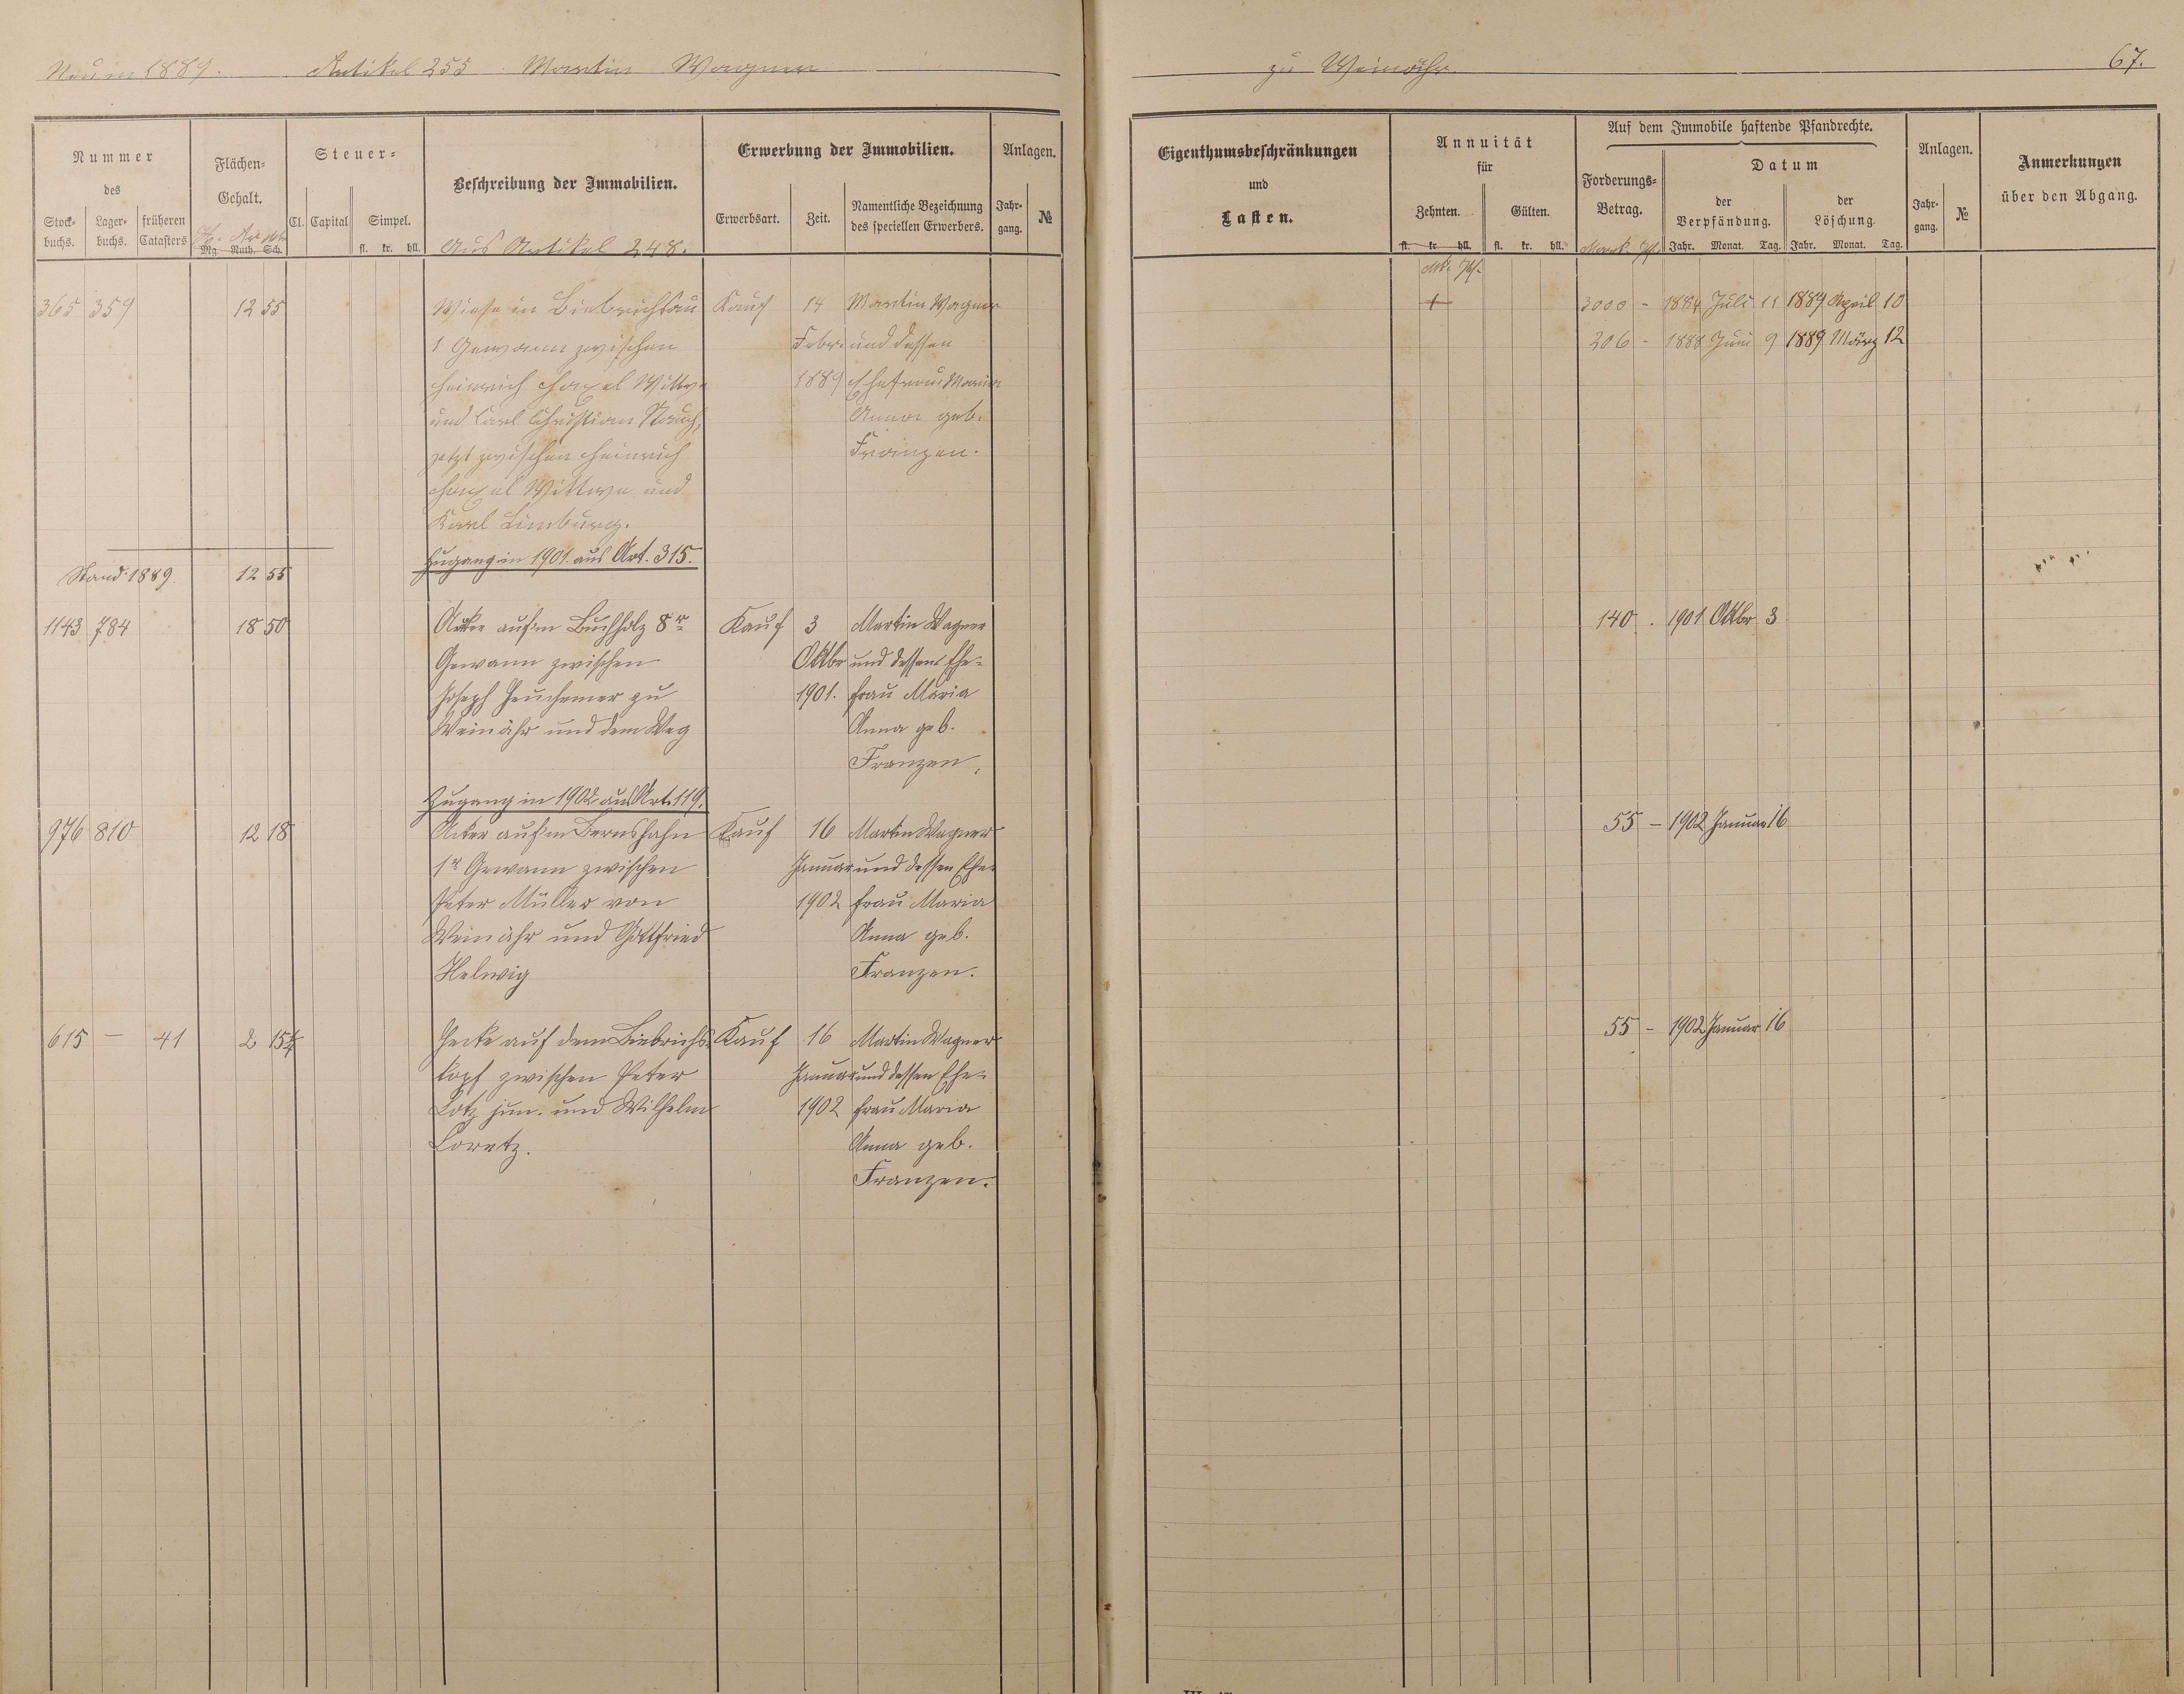 Neu in 1889. Artikel 255 Martin Wagner zu Weinähr. 67.
Nummer des
Stockbuchs. Lagerbuchs. früheren Catasters
Flächen-Gehalt.
Mg. Ruth. Sch.
Steuer-
Cl. Capital Simpel.
fl. kr. hll.
Beschreibung der Immobilien.
Aus Artikel 248.
Erwerbung der Immobilien.
Erwerbsart. Zeit. Namentliche Bezeichnung des speciellen Erwerbers.
Anlagen.
Jahrgang. №
Eigenthumsbeschränkungen
und
Lasten.
Annuität
für
Zehnten. Gülten.
fl. kr. hll. fl. kr. hll.
Mk. Pf.
Auf dem Immobile haftende Pfandrechte.
Forderungs-Betrag.
Mark. Pf.
Datum
der Verpfändung. der Löschung.
Jahr. Monat. Tag. Jahr. Monat. Tag.
Anlagen.
Jahrgang. №
Anmerkungen
über den Abgang.
365 359 12 55 Wiese in Biebrichsau Kauf 14 Martin Wagner 3000 - 1884 Juli 11 1889 April 10
1 Gewann zwischen Febr. und dessen 206 - 1888 Juni 9 1889 März 12
Heinrich Wittwe 1889 Ehefrau Maria
und Carl Christian Anna geb.
jetzt zwischen Heinrich Franzen.
Wittwe und
Karl Limburg.
Zugang in 1901 aus Art. 315.
Stand 1889. 12 55
1143 784 18 50 Acker auf'm Buchholz 8r Kauf 3 Martin Wagner 140 . 1901 Oktbr 3
Gewann zwischen Oktbr und dessen Ehe-
Joseph Heuchemer zu 1901. frau Maria
Weinähr und dem Weg Anna geb.
Franzen.
Zugang in 1902 aus Art. 119.
976 810 12 18 Acker auf'm Bernshahn Kauf 16 Martin Wagner 55 - 1902 Januar 16
1r Gewann zwischen Januar und dessen Ehe-
Peter Müller von 1902 frau Maria
Weinähr und Gottfried Anna geb.
Helwig Franzen.
615 - 41 2 15 Hecke auf dem Biebrichs- Kauf 16 Martin Wagner 55 - 1902 Januar 16
kopf zwischen Peter Januar und dessen Ehe-
Lotz jun. und Wilhelm 1902 frau Maria
Loretz. Anna geb.
Franzen.